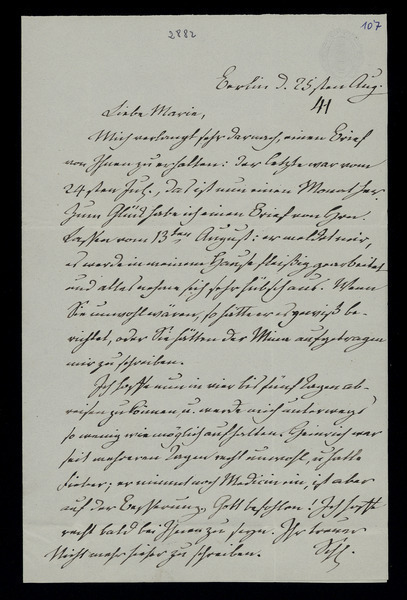 2882
107
Berlin d. 25sten Aug.
41
Liebe Marie,
Mich verlangt sehr darnach, einen Brief
von Ihnen zu erhalten: der letzte war vom
24sten Jul., das ist nun einen Monat her.
Zum Glück habe ich einen Brief von Hrn.
Lassen vom 13ten August: er meldet mir,
es werde in meinem Hause fleißig gearbeitet
und alles nehme sich sehr hübsch aus. Wenn
Sie unwohl wären, so hätte er es gewiß be-
richtet, oder Sie hätten der Mina aufgetragen
mir zu schreiben.
Ich hoffe nun in vier bis fünf Tagen ab-
reisen zu können u. werde mich unterwegs
so wenig wie möglich aufhalten. Heinrich war
seit mehreren Tagen recht unwohl, u hatte
Fieber; er nimmt noch Medicin ein, ist aber
auf der Besserung. Gott befohlen. Ich hoffe
recht bald bei Ihnen zu seyn. Ihr treuer
Nicht mehr hieher zu schreiben. Schl.